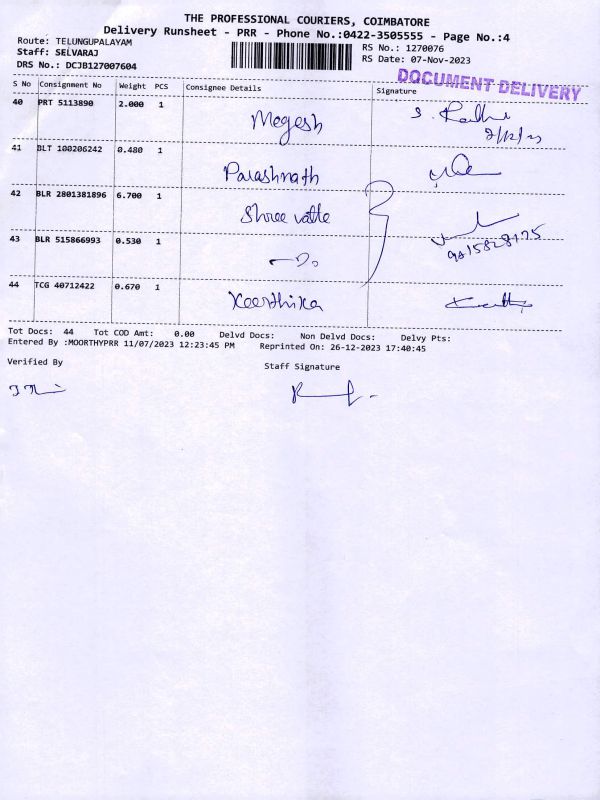 THE PROFESSIONAL COURIERS, COIMBATORE
Delivery Runsheet - PRR - Phone No.:0422-3505555 - Page No.:4
Route: TELUNGUPALAYAM
Staff: SELVARAJ
DRS No.: DCJB127007604
RS No.: 1270076
RS Date: 07-Nov-2023
DOCUMENT DELIVERY
S No Consignment No Weight PCS Consignee Details Signature
40 PRT 5113890 2.000 1 Mogesh
41 BLT 100206242 0.480 1 Parashnath
42 BLR 2801381896 6.700 1 Shree vatle
9815828175
43 BLR 515866993 0.530 1
44 TCG 40712422 0.670 1 Keerthika
Tot Docs: 44 Tot COD Amt: 0.00 Delvd Docs: Non Delvd Docs: Delvy Pts:
Entered By :MOORTHYPRR 11/07/2023 12:23:45 PM Reprinted On: 26-12-2023 17:40:45
Verified By
Staff Signature